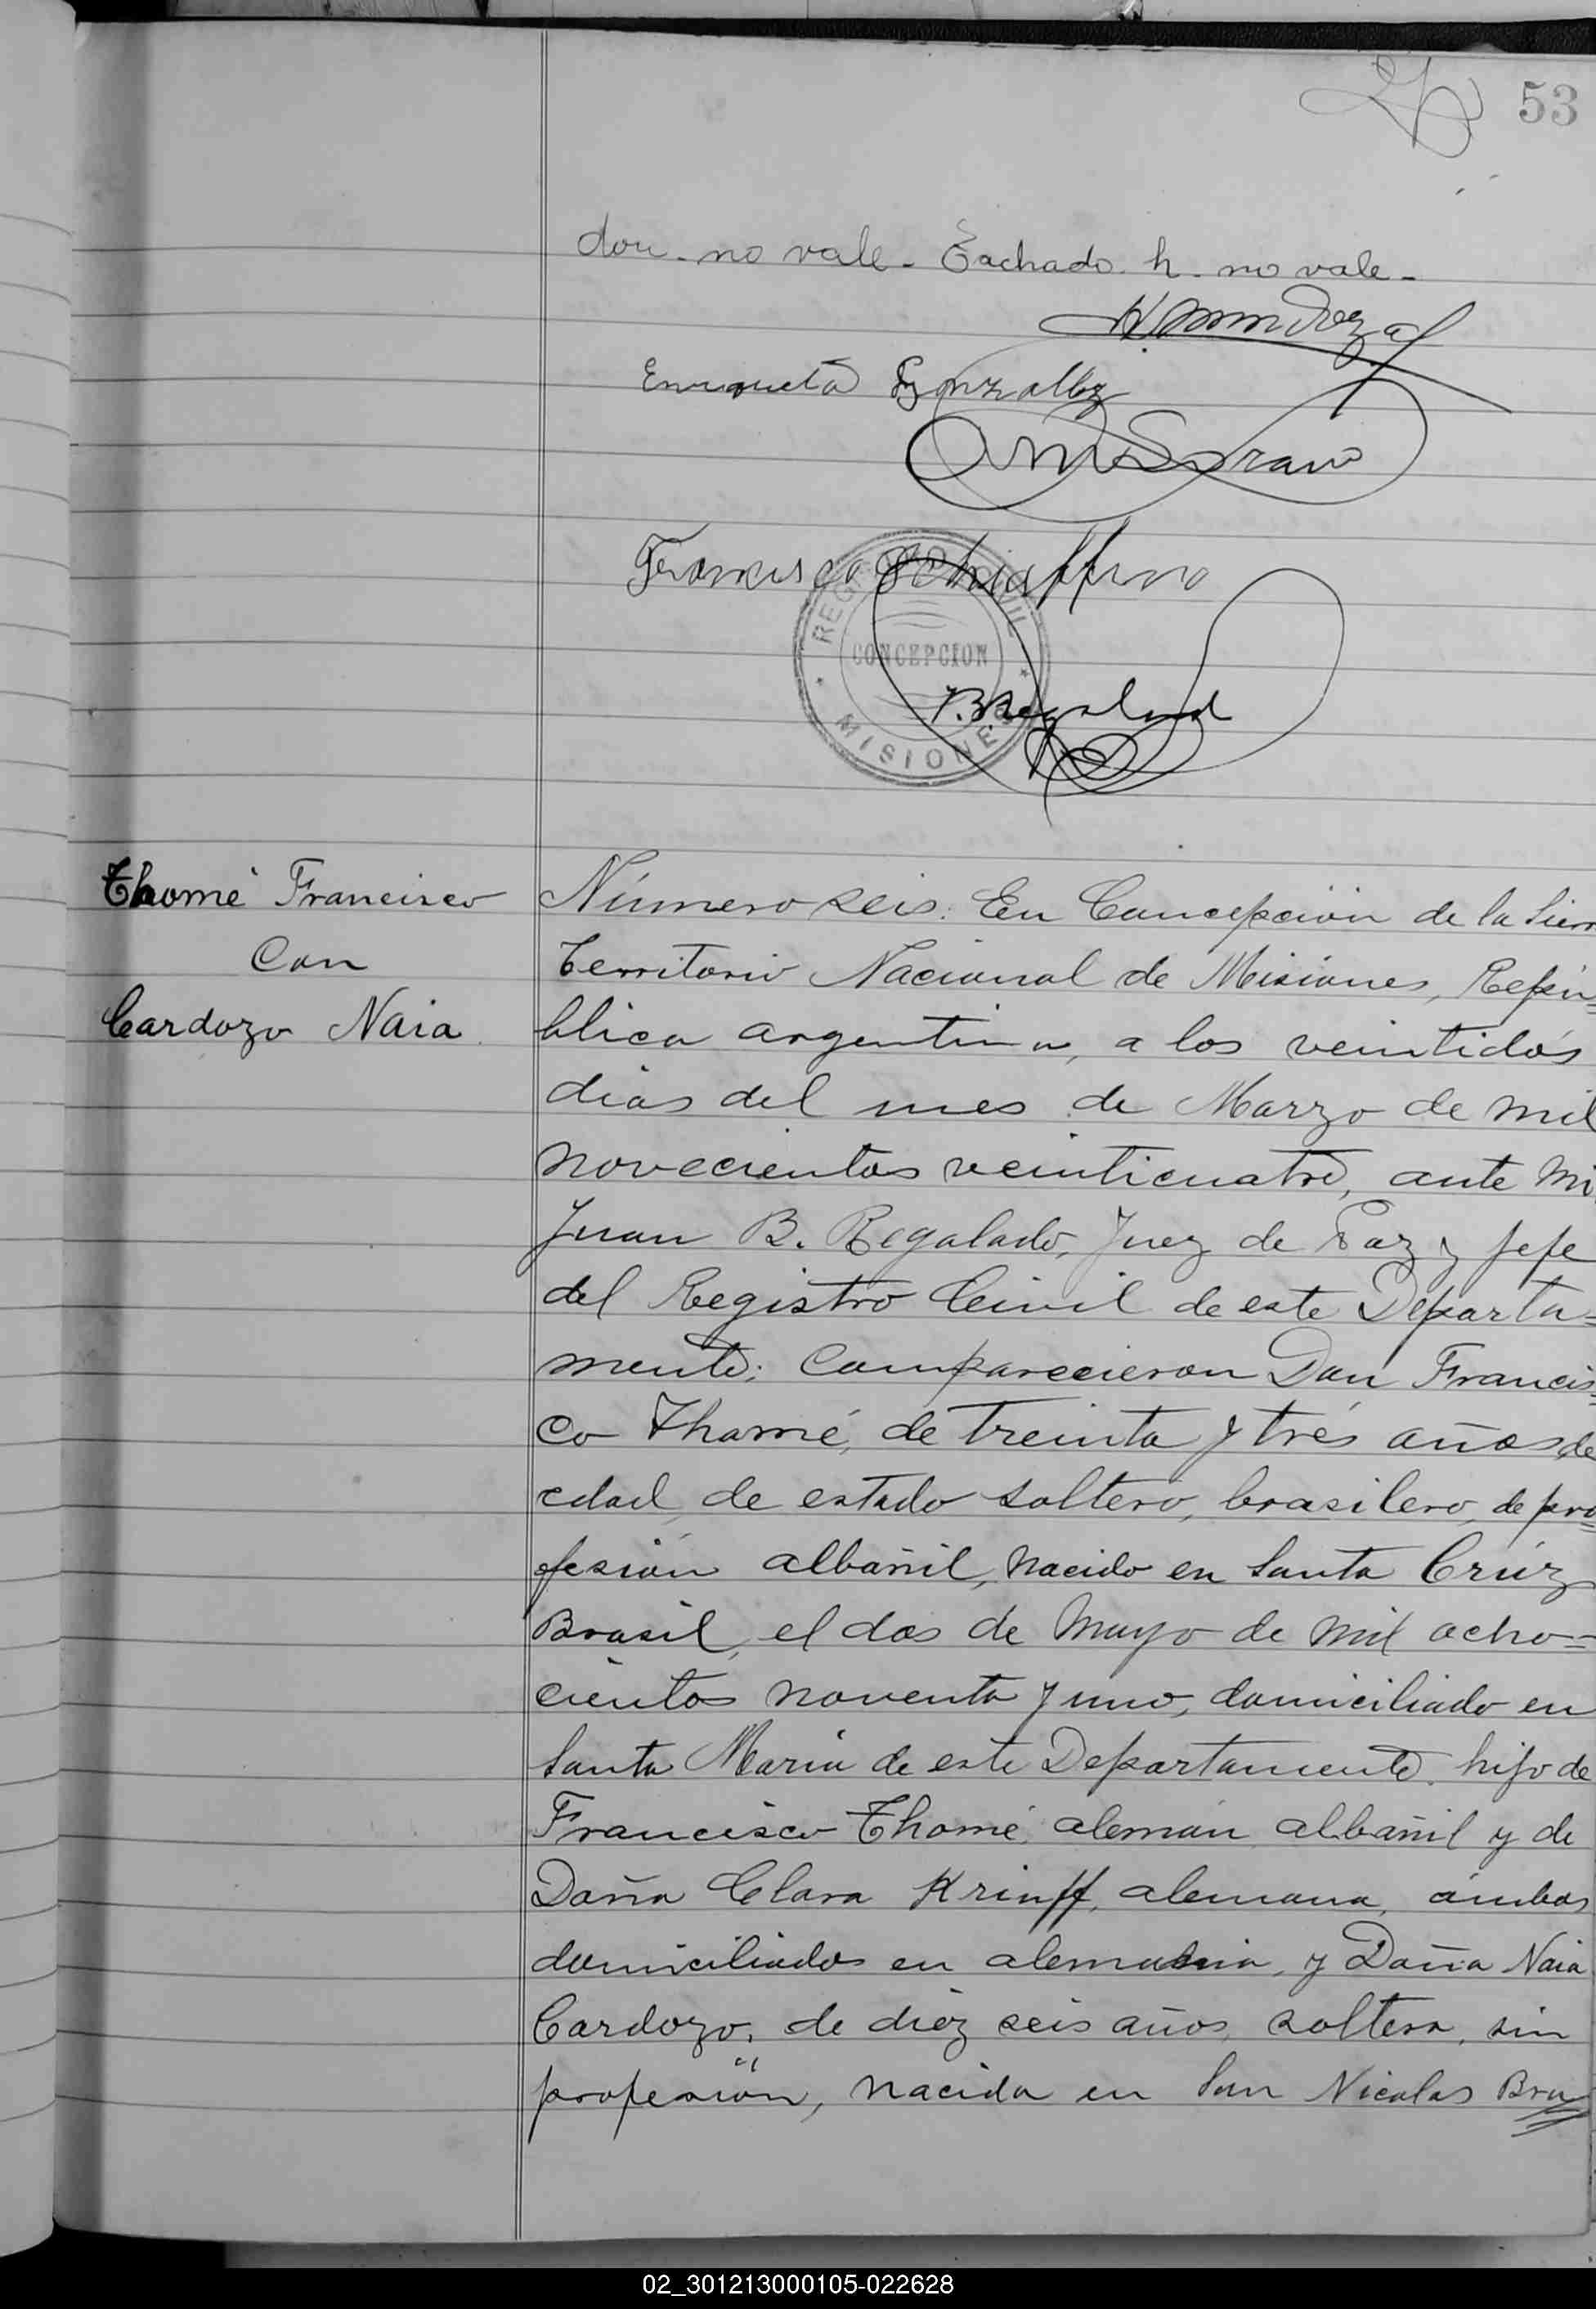 53
dou. no vale. Tachado. h. no vale.
Enriqueta Gonzalez
Francisco Schiaffino
REGISTRO CIVIL
CONCEPCION
MISIONES
J.B.Regalado
Thomé Francisco
Con
Cardozo Naia
Número seis. En Concepción de la Sierr
Territorio Nacional de Misiones, Repú=
blica argentina, a los veintidós
dias del mes de Marzo de mil
novecientos veinticuatro, ante mi
Juan B. Regalado, Juez de Paz y jefe
del Registro Civil de este Departa=
mento: Comparecieron Don Francis=
co Thomé, de treinta y trés años de
edad, de estado soltero, brasilero, de pro=
fesión albañil, nacido en Santa Crúz
Brasil, el dos de Mayo de mil ocho=
cientos noventa y uno, domiciliado en
Santa Maria de este Departamento. hijo de
Francisco Thomé, alemán albañil y de
Doña Clara Krinff, alemana, ámbos
domiciliados en alemania, y Doña Naia
Cardozo, de diez seis años, soltera, sin
profesión, nacida en San Nicolas Bra
02_301213000105-022628